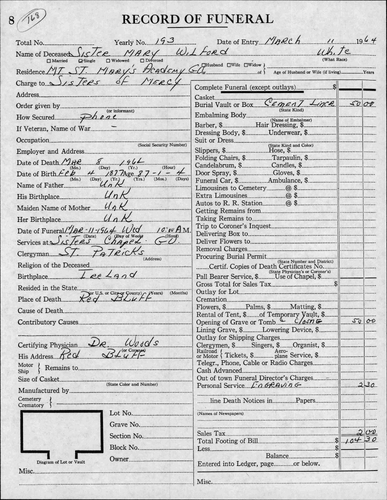 8 768 RECORD OF FUNERAL
Total No. Yearly No. 193 Date of Entry March 11 1964
Name of Deceased Sister Mary Wilford White
Married Single Widowed Divorced (What Race)
Residence Mt. St. Mary's Academy GV Husband Wife Widow of Age of Husband or Wife (if living) Years
Charge to Sisters of Mercy
Address
Order given by
(or informant)
How Secured phone
If Veteran, Name of War -
Occupation
(Social Security Number)
Employer and Address
Date of Death Mar 8 1964
(Mo.) (Day) (Yr.) (Hour)
Date of Birth Feb 4 1877 Age 87-1-4
(Mo.) (Day) (Yr.)
Name of Father Unk
His Birthplace Unk
Maiden Name of Mother Unk
Her Birthplace Unk
Date of Funeral Mar-11-1964 Wed 10:00 A.M.
(Date) (Day of Week) (Hour)
Services at Sisters Chapel GV
Clergyman St. Patricks
(Address)
Religion of the Deceased
Birthplace Ireland
Resided in the State
(or U.S. or City or County) (Years) (Months)
Place of Death Red Bluff
Cause of Death
Contributory Causes
Certifying Physician Dr. Woods
His Address Red Bluff
Motor Ship Remains to
Size of Casket
(State Color and Number)
Manufactured by
Cemetery
Crematory
Lot No.
Grave No.
Section No.
Block No.
Owner
Diagram of Lot or Vault
Misc.
Complete Funeral (except outlays) $
Casket
Burial Vault or Box Cement Liner 50 00
(State Kind)
Embalming Body
(Name of Embalmer)
Barber, $ Hair Dressing, $
Dressing Body, $ Underwear, $
Suit or Dress
(State Kind and Color)
Slippers, $ Hose, $
Folding Chairs, $ Tarpaulin, $
Candelabrum, $ Candles, $
Door Spray, $ Gloves, $
Funeral Car, $ Ambulance, $
Limousines to Cemetery @ $
Extra Limousines @ $
Autos to R. R. Station @ $
Getting Remains from
Taking Remains to
Trip to Coroner's Inquest
Delivering Box to
Deliver Flowers to
Removal Charges
Procuring Burial Permit
(State Number and District)
Certif. Copies of Death Certificates No.
(State Physician's or Coroner's)
Pall Bearer Service, $ Use of Chapel, $
Gross Total for Sales Tax $
Outlay for Lot
Cremation
Flowers, $ Palms, $ Matting, $
Rental of Tent, $ of Temporary Vault, $
Opening of Grave or Tomb
Lining Grave, $ Lowering Device, $
Outlay for Shipping Charges
Clergymen, $ Singers, $ Organist, $
Railroad or Motor Tickets, $ Aeroplane Service, $
Telegr., Phone, Cable or Radio Charges
Cash Advanced
Out of town Funeral Director's Charges
Personal Service Engraving 2 30
line Death Notices in Papers
(Names of Newspapers)
Sales Tax 2 00
Total Footing of Bill $ 104 30
Less $
Balance $
Entered into Ledger, page or below.
Misc.